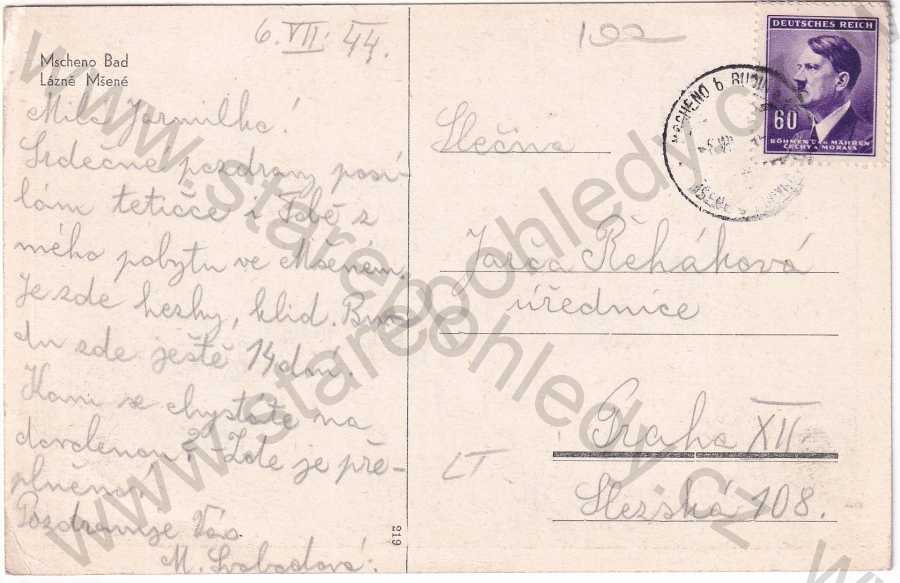 6. VII. 44.
Mscheno Bad
Lázně Mšené
Milá Jarmilko!
Srdečné pozdravy posí-
lám tetičce i Tobě z
mého pobytu ve Mšeném.
Je zde hezky, klid. Bu-
du zde ještě 14 dní.
Kam se chystáte na
dovolenou? Zde je pře-
plněno.
Pozdravuje Vás
M. Svobodová.
219
100
DEUTSCHES REICH
60
BÖHMEN U. MÄHREN
ČECHY A MORAVA
MSCHENO b.
MŠENÉ
Slečna
Jarča Řeháková
úřednice
Praha XII
Slezská 108.
LT
www.starepohledy.cz
www.starepohledy.cz